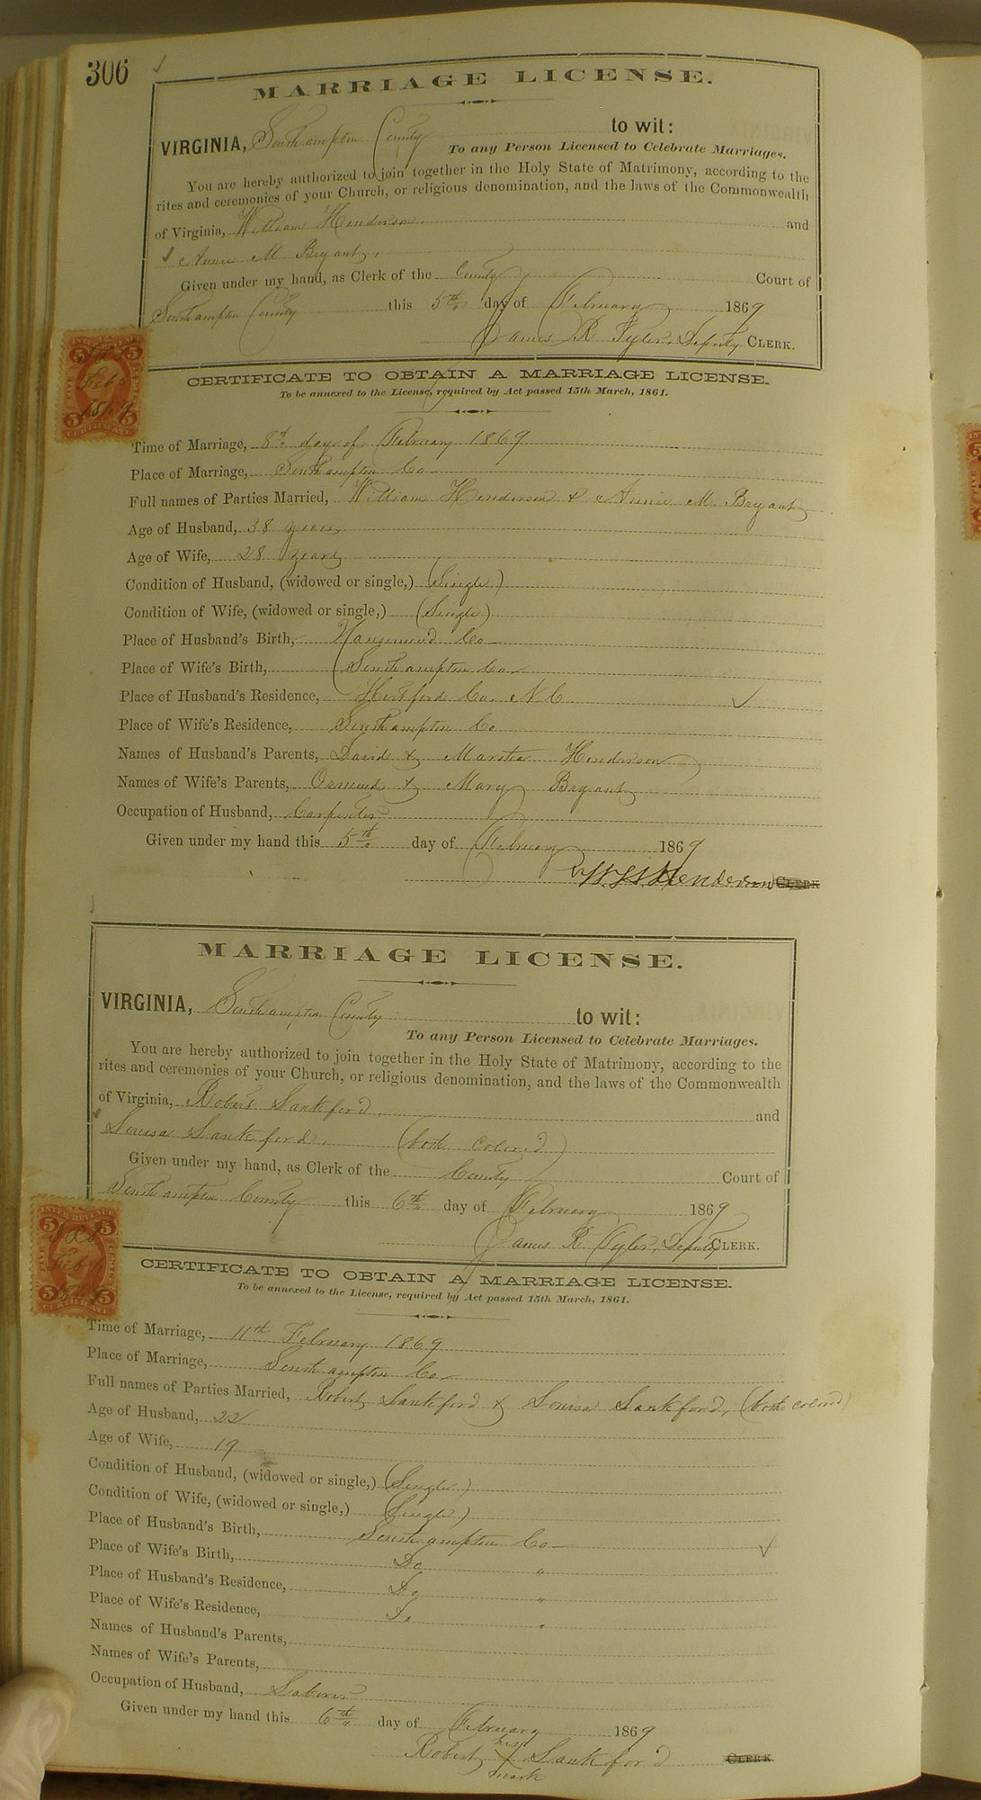 306
MARRIAGE LICENSE.
VIRGINIA, Southampton County to wit:
To any Person Licensed to Celebrate Marriages.
You are hereby authorized to join together in the Holy State of Matrimony, according to the
rites and ceremonies of your Church, or religious denomination, and the laws of the Commonwealth
of Virginia, William Henderson and
Annie M Bryant,
Given under my hand, as Clerk of the County Court of
Southampton County this 5th day of February 1869
James R Tyler, Deputy CLERK.
CERTIFICATE TO OBTAIN A MARRIAGE LICENSE.
To be annexed to the License, required by Act passed 15th March, 1861.
Time of Marriage, 8th day of February 1869
Place of Marriage, Southampton Co
Full names of Parties Married, William Henderson & Annie M. Bryant
Age of Husband, 38 years
Age of Wife, 28 years
Condition of Husband, (widowed or single,) (Single)
Condition of Wife, (widowed or single,) (Single)
Place of Husband's Birth, Nansemond Co
Place of Wife's Birth, Southampton Co
Place of Husband's Residence, Hertford Co. N C
Place of Wife's Residence, Southampton Co
Names of Husband's Parents, David & Martha Henderson
Names of Wife's Parents, & Mary Bryant
Occupation of Husband, Carpenter
Given under my hand this 5th day of February 1869
Henderson CLERK
MARRIAGE LICENSE.
VIRGINIA, Southampton County to wit:
To any Person Licensed to Celebrate Marriages.
You are hereby authorized to join together in the Holy State of Matrimony, according to the
rites and ceremonies of your Church, or religious denomination, and the laws of the Commonwealth
of Virginia, Robert Lankford, and
Louisa Lankford, (both colored)
Given under my hand, as Clerk of the County Court of
Southampton County this 6th day of February 1869
James R. Tyler, Deputy CLERK.
CERTIFICATE TO OBTAIN A MARRIAGE LICENSE.
To be annexed to the License, required by Act passed 15th March, 1861.
Time of Marriage, 11th February 1869
Place of Marriage, Southampton Co
Full names of Parties Married, Robert Lankford & Louisa Lankford, (both colored)
Age of Husband, 22
Age of Wife, 19
Condition of Husband, (widowed or single,) (Single)
Condition of Wife, (widowed or single,) (Single)
Place of Husband's Birth, Southampton Co
Place of Wife's Birth, Do "
Place of Husband's Residence, Do "
Place of Wife's Residence, Do "
Names of Husband's Parents,
Names of Wife's Parents,
Occupation of Husband, Laborer
Given under my hand this 6th day of February 1869
Robert his X mark Lankford CLERK